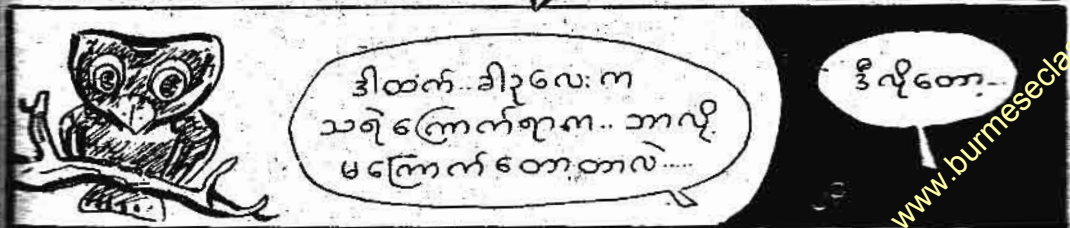 ဒါထက်..ခါဥလေးက
သရဲကြောက်ရာက..ဘာလို့
မကြောက်တော့တာလဲ.....
ဒီလိုတော့...
www.burmesecla